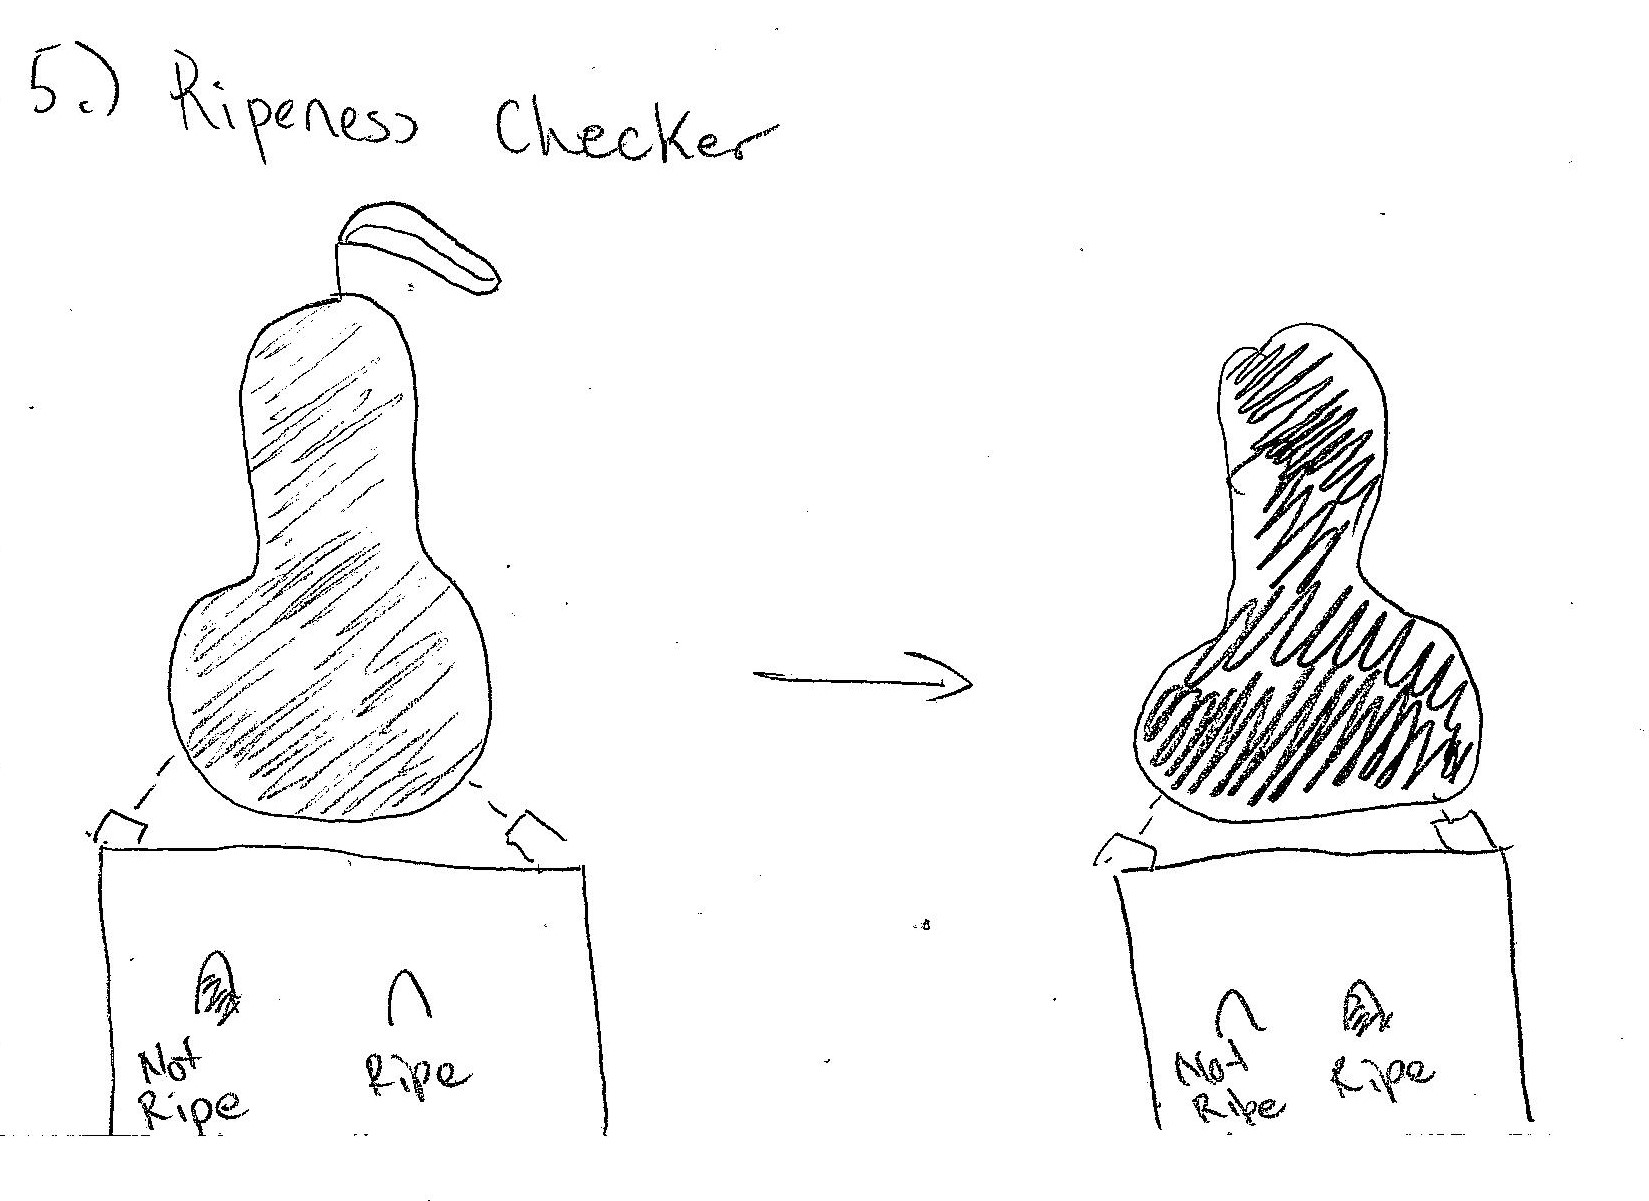 5.) Ripeness Checker
Not
Ripe
Ripe
Not
Ripe
Ripe